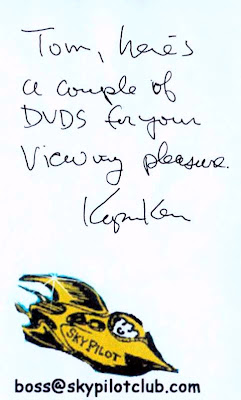 Tom, here's
a couple of
DVDS for your
Viewing pleasure.
SKY PILOT
boss@skypilotclub.com